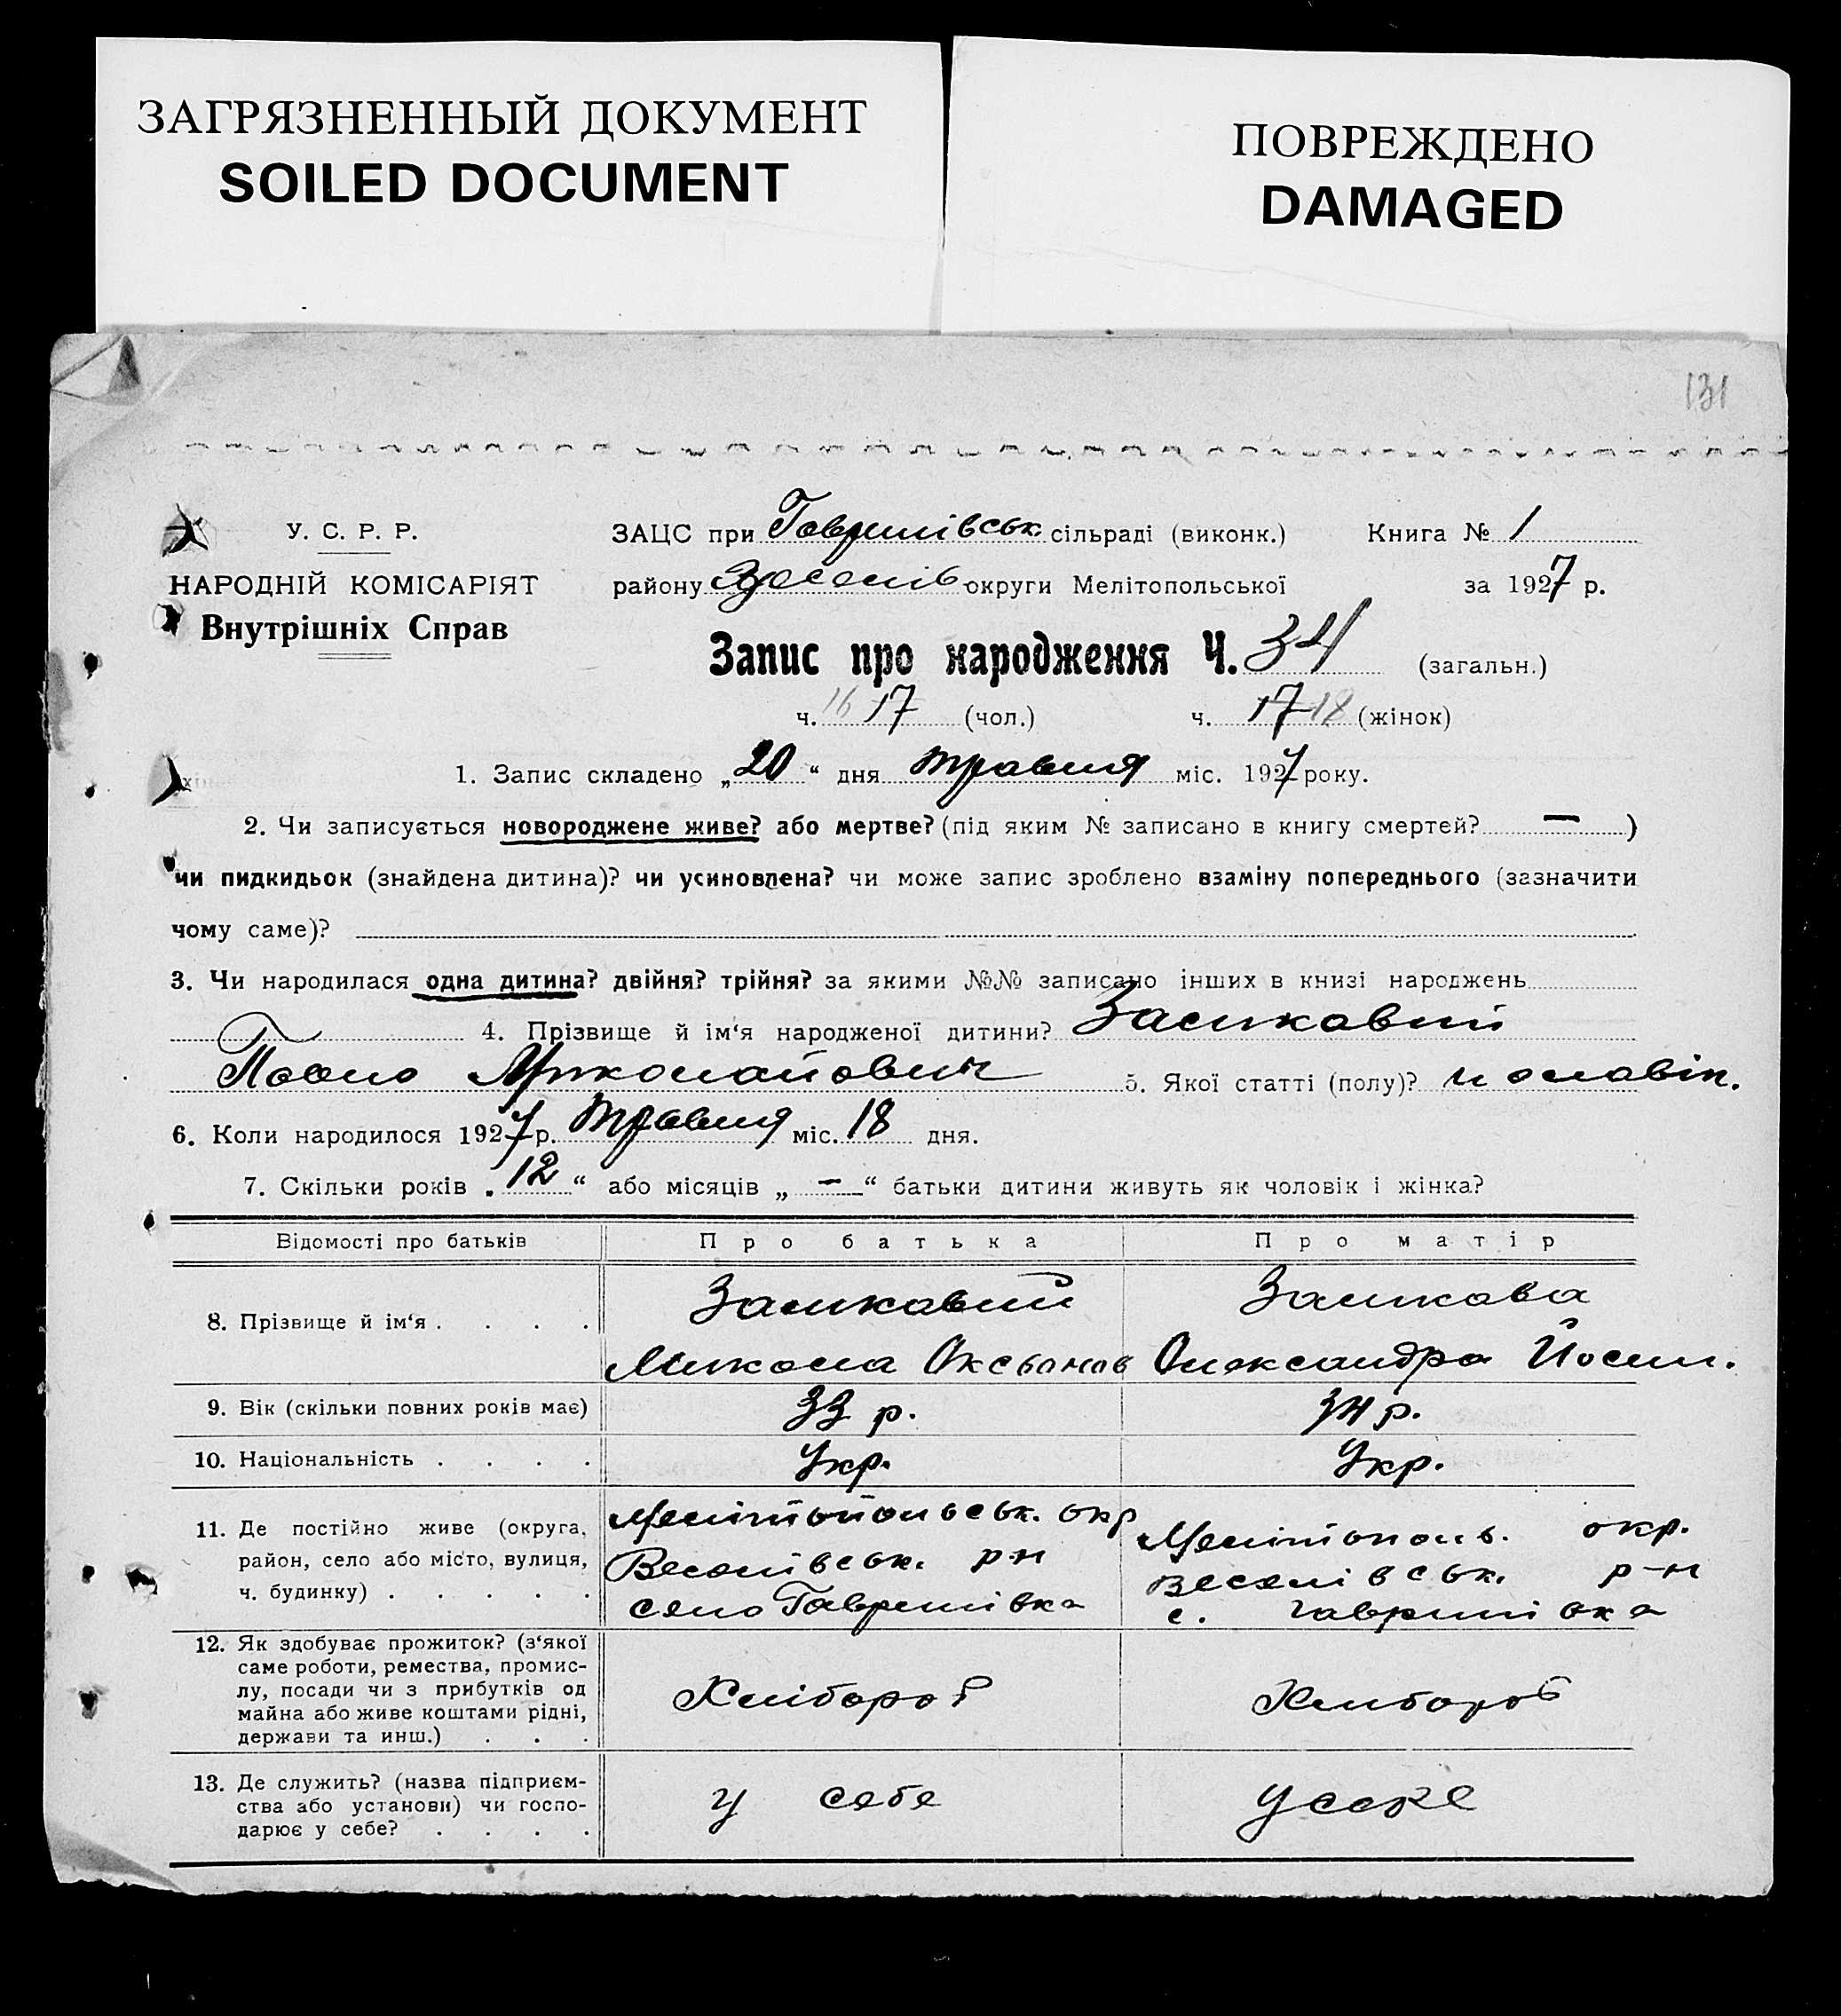 ЗАГРЯЗНЕННЫЙ ДОКУМЕНТ
SOILED DOCUMENT
ПОВРЕЖДЕНО
DAMAGED
131
У. С. Р. Р.
НАРОДНІЙ КОМІСАРІЯТ
Внутрішніх Справ
ЗАЦС при Гаврилівськ. сільраді (виконк.) Книга № 1
району округи Мелітопольської за 1927 р.
Запис про народження Ч. 34 (загальн.)
ч. 16 17 (чол.) ч. 17 18 (жінок)
1. Запис складено „20“ дня травня міс. 1927 року.
2. Чи записується новороджене живе? або мертве? (під яким № записано в книгу смертей? — )
чи пидкидьок (знайдена дитина)? чи усиновлена? чи може запис зроблено взаміну попереднього (зазначити
чому саме)?
3. Чи народилася одна дитина? двійня? трійня? за якими №№ записано інших в книзі народжень
4. Прізвище й ім‘я народженої дитини?
Павло Миколайович 5. Якої статті (полу)? чоловіч.
6. Коли народилося 1927 р. травня міс. 18 дня.
7. Скільки років „12“ або місяців „—“ батьки дитини живуть як чоловік і жінка?
Відомості про батьків Про батька Про матір
8. Прізвище й ім‘я
Микола Олександра Йосип.
9. Вік (скільки повних років має) 33 р. 34 р.
10. Національність Укр. Укр.
11. Де постійно живе (округа, район, село або місто, вулиця, ч. будинку)
Мелітопольськ. окр
Веселівськ. р-н
село Гаврилівка
Мелітополь. окр.
Веселівськ. р-н
с. Гаврилівка
12. Як здобуває прожиток? (з‘якої
саме роботи, ремества, промис-
лу, посади чи з прибутків од
майна або живе коштами рідні,
держави та инш.)
Хлібороб Хлібороб
13. Де служить? (назва підприєм-
ства або установи) чи госпо-
дарює у себе?
у себе у себе